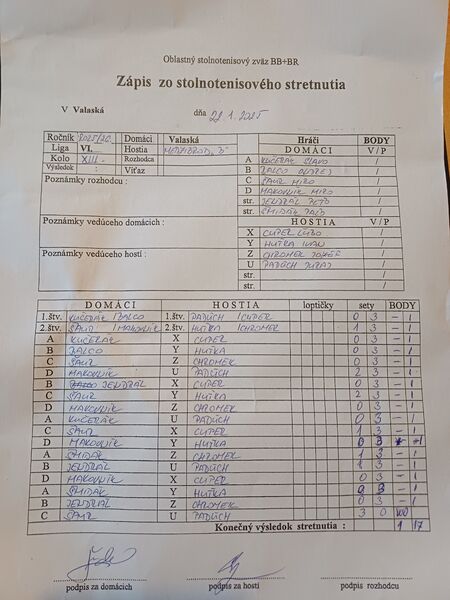 Oblastný stolnotenisový zväz BB+BR
Zápis zo stolnotenisového stretnutia
V Valaská dňa 29.1.2025
Ročník 2025/26 Domáci Valaská
Liga VI. Hostia MEDZIBROD "B"
Kolo XIII. Rozhodca
Výsledok : Víťaz
Poznámky rozhodcu :
Poznámky vedúceho domácich :
Poznámky vedúceho hostí :
Hráči BODY
DOMÁCI V/P
A KUČERÁK SLAVO /
B BALCO /
C ŠAUR MIRO /
D MAKOVNÍK MIRO /
str. JENDRÁL PETO /
str. ŠMIDÁK PALO /
HOSTIA V/P
X CUPER ĽUBO /
Y HUTKA IVAN /
Z CHROMEK JOZEF /
U PADÚCH JURAJ /
str. /
str. /
DOMÁCI HOSTIA loptičky sety BODY
1.štv. KUČERÁK BALCO 1.štv. PADÚCH CUPER 0 3 - 1
2.štv. ŠAUR MAKOVNÍK 2.štv. HUTKA CHROMEK 1 3 - 1
A KUČERÁK X CUPER 0 3 - 1
B BALCO Y HUTKA 0 3 - 1
C ŠAUR Z CHROMEK 0 3 - 1
D MAKOVNÍK U PADÚCH 2 3 - 1
B JENDRÁL X CUPER 0 3 - 1
C ŠAUR Y HUTKA 2 3 - 1
D MAKOVNÍK Z CHROMEK 0 3 - 1
A KUČERÁK U PADÚCH 0 3 - 1
C ŠAUR X CUPER 1 3 - 1
D MAKOVNÍK Y HUTKA 0 3 - 1
A ŠMIDÁK Z CHROMEK 1 3 - 1
B JENDRÁL U PADÚCH 1 3 - 1
D MAKOVNÍK X CUPER 0 3 - 1
A ŠMIDÁK Y HUTKA 0 3 - 1
B JENDRÁL Z CHROMEK 0 3 - 1
C ŠAUR U PADÚCH 3 0
Konečný výsledok stretnutia : 1 17
podpis za domácich podpis za hostí podpis rozhodcu